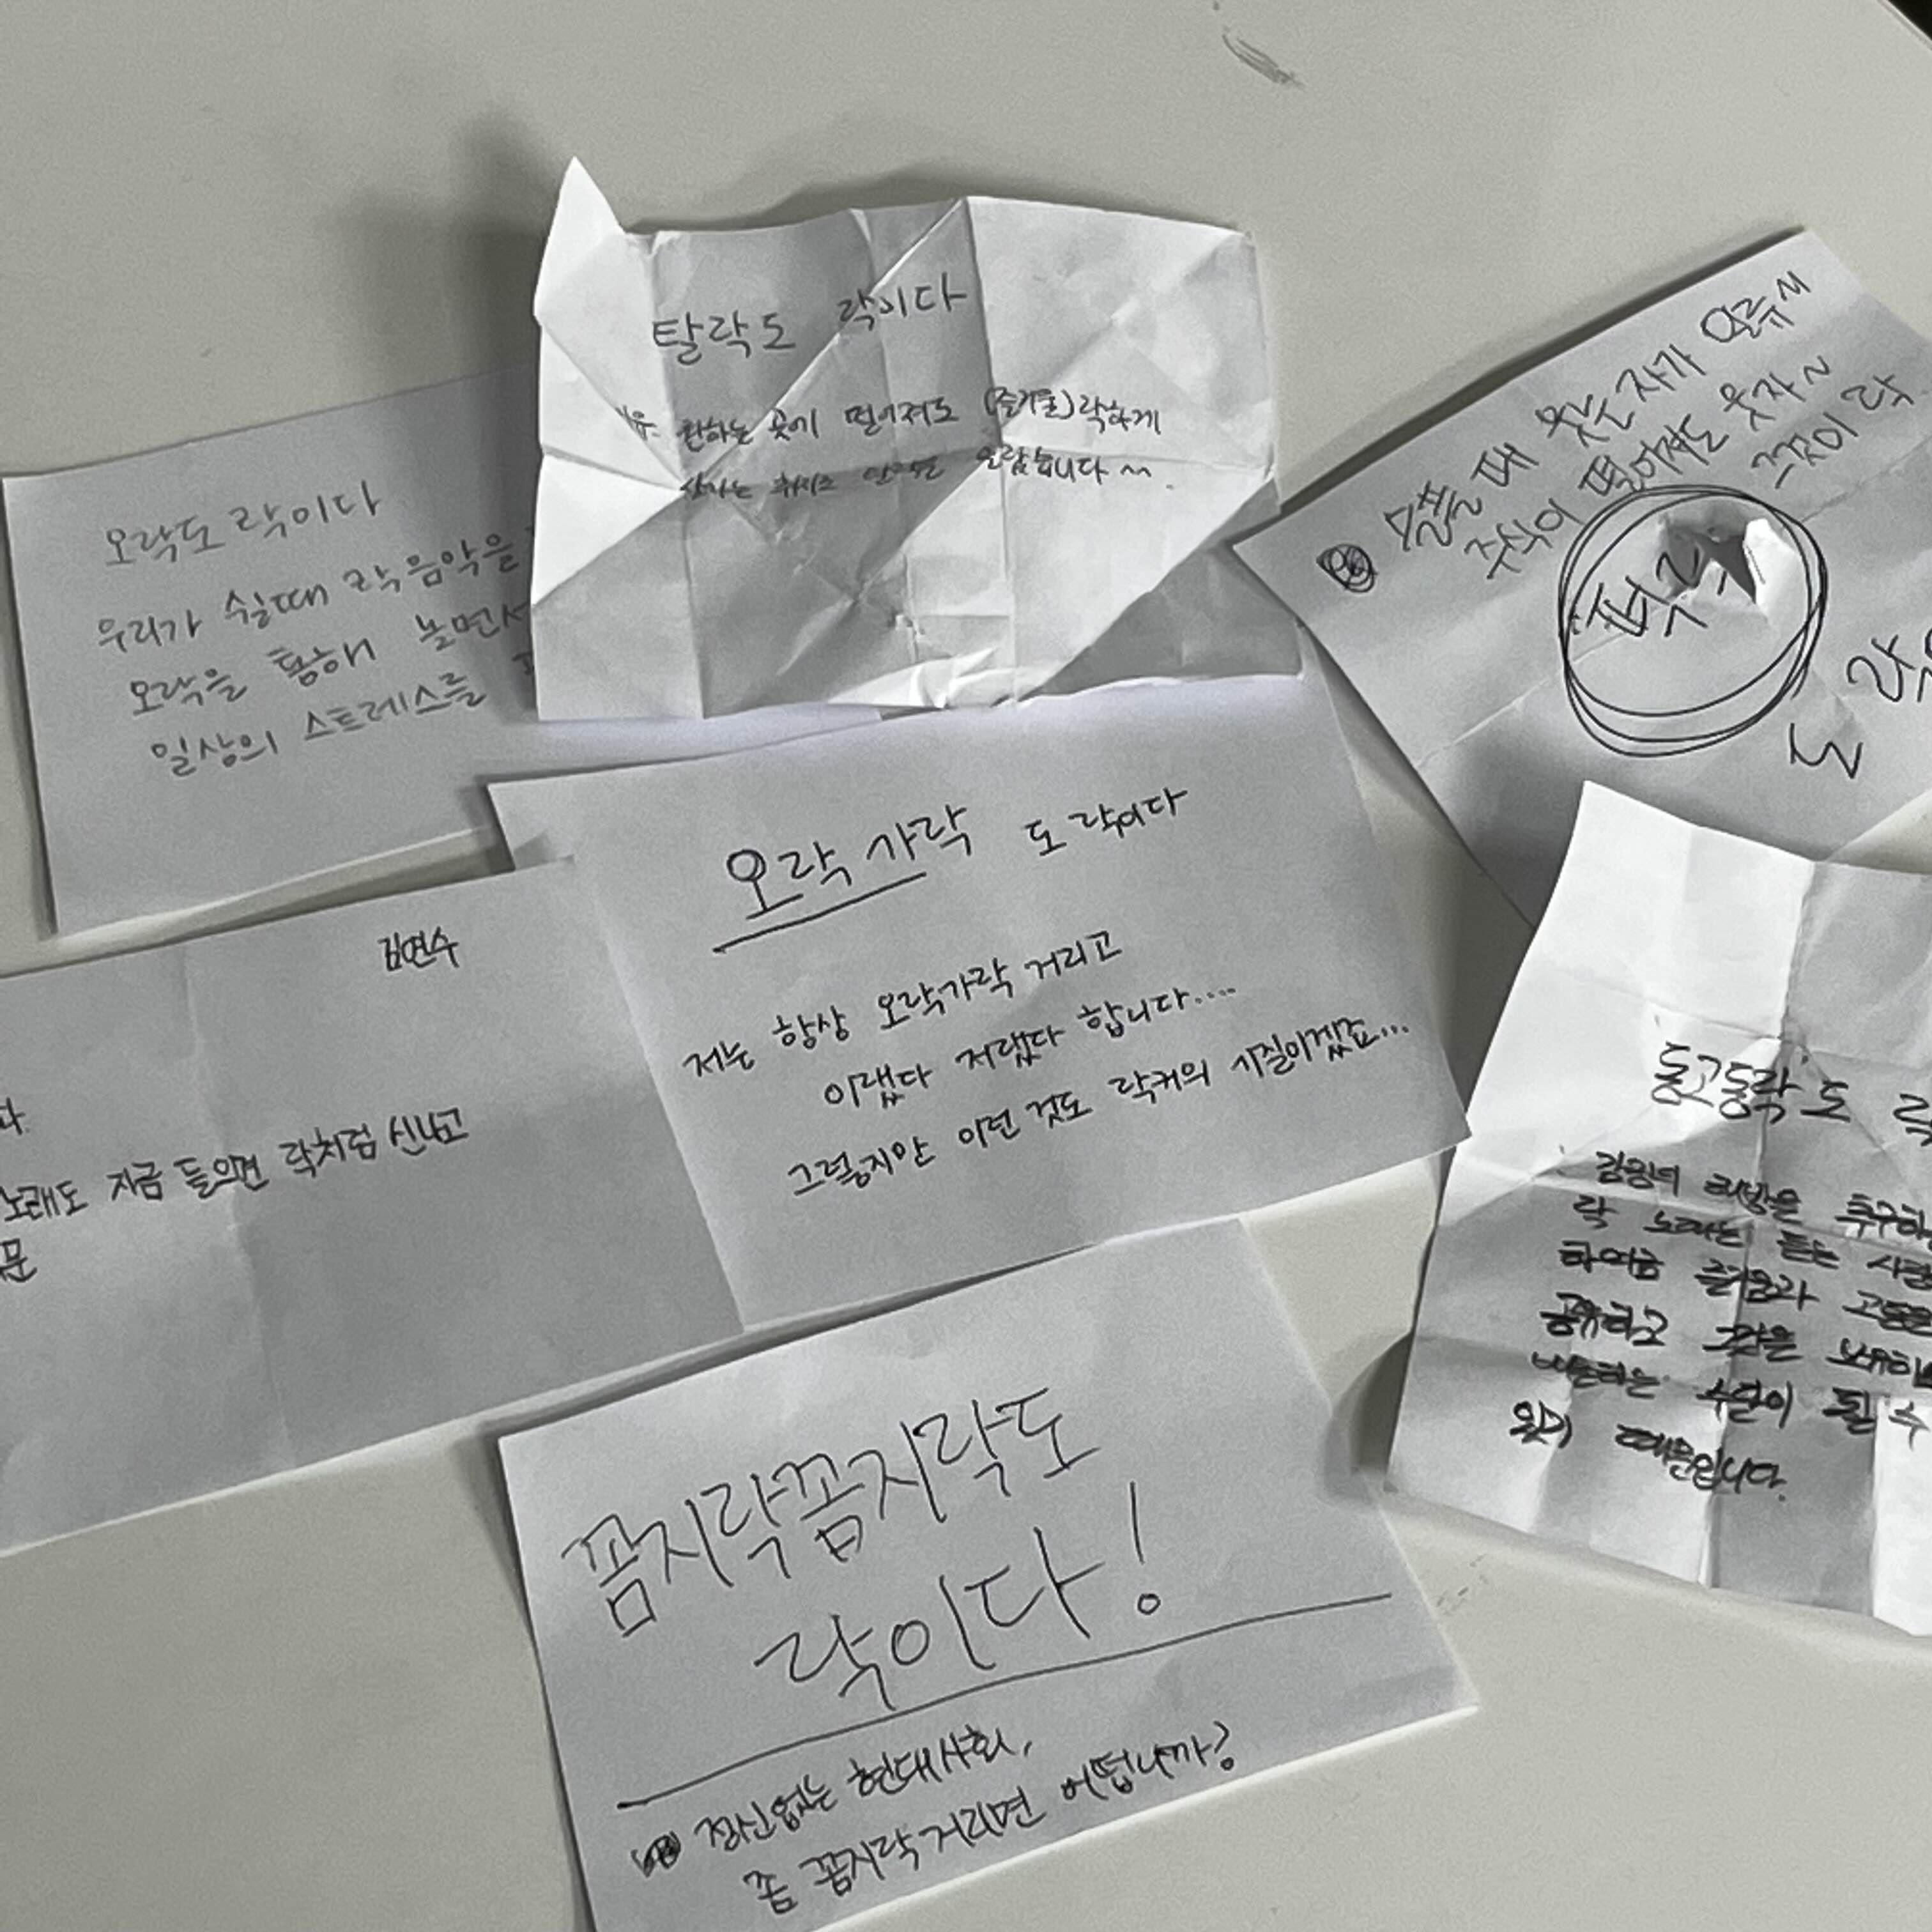 탈락도 락이다
원하는 곳에 떨어져도 (즐거울)락하게
오락도 락이다
우리가 쉴때 락음악을
오락을 통해 놀면서
일상의 스트레스를
때 웃는 자가 일류~
주식이 떡어져도 웃자~
그것이 락
오락가락 도 락이다
저는 항상 오락가락 거리고
이랬다 저랬다 합니다....
그렇지만 이런 것도 락커의 기질이겠죠...
김연수
다.
노래도 지금 들으면 락처럼 신나고
문
동고동락도
락 노래는 듣는 사람
하여금 즐거움과
공유하고 그것을
수단이 될 수
있기 때문입니다.
꼼지락꼼지락도
락이다!
정신없는 현대사회,
좀 꼼지락거리면 어떱니까?